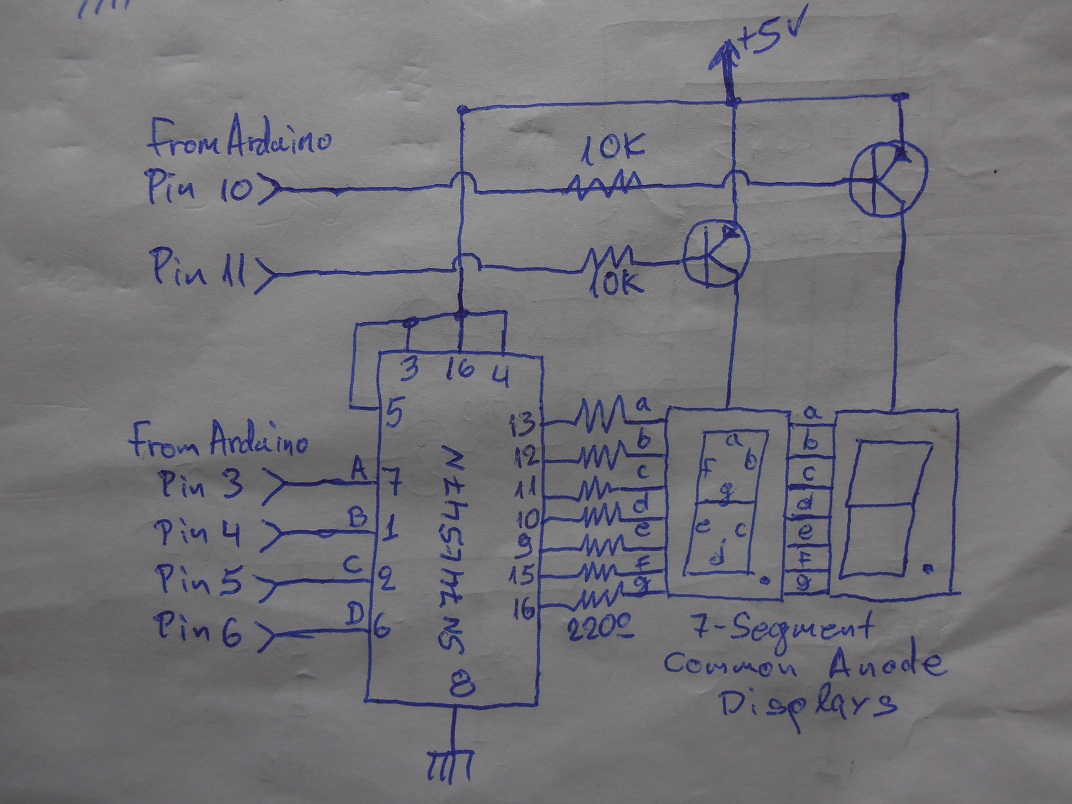 +5V
From Arduino
Pin 10
10K
Pin 11
10K
3 16 4
5
13 a a
12 b b
11 c c
10 d d
9 e e
15 f f
16 g g
From Arduino
Pin 3 A 7
Pin 4 B 1
Pin 5 C 2
Pin 6 D 6
SN74LS47N
8
a
f b
g
e c
d
220Ω
7-Segment
Common Anode
Displays